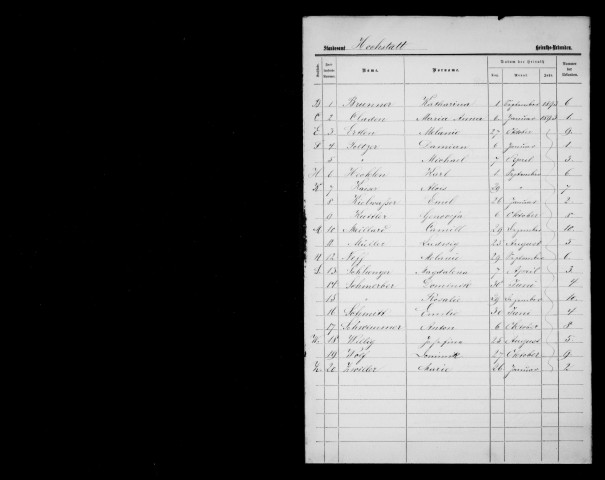 Standesamt Hochstatt Heiraths-Urkunden.
Name. Vorname. Datum der Heirath Nummer der Urkunden.
Tag. Monat. Jahr.
B 1 Brunner Katharina 1 September 1893 6
C 2 Claden Maria Anna 6 Januar 1893 1
E 3 Erden Melanie 27 Oktober 9
4 Foltzer Damian 6 Januar 1
5 " Michael 7 April 3
H 6 Hechlen Karl 1 September 6
K 7 Kaiser Alois 29 " 7
8 Emil 26 Januar 2
9 Kuttler Genovefa 6 Oktober 8
M 10 Maillard Camill 29 Dezember 10
11 Müller Ludwig 25 August 5
N 12 Noff Melanie 29 September 6
S 13 Schlienger Magdalena 7 April 3
14 Schmerber Dominick 30 Juni 4
15 " Rosalie 29 Dezember 10
16 Schmitt Emilie 30 Juni 4
17 Schwimmer Anton 6 Oktober 8
W 18 Willig Josefina 25 August 5
19 Wolf Dominick 27 Oktober 9
Z 20 Zwiller Marie 26 Januar 2